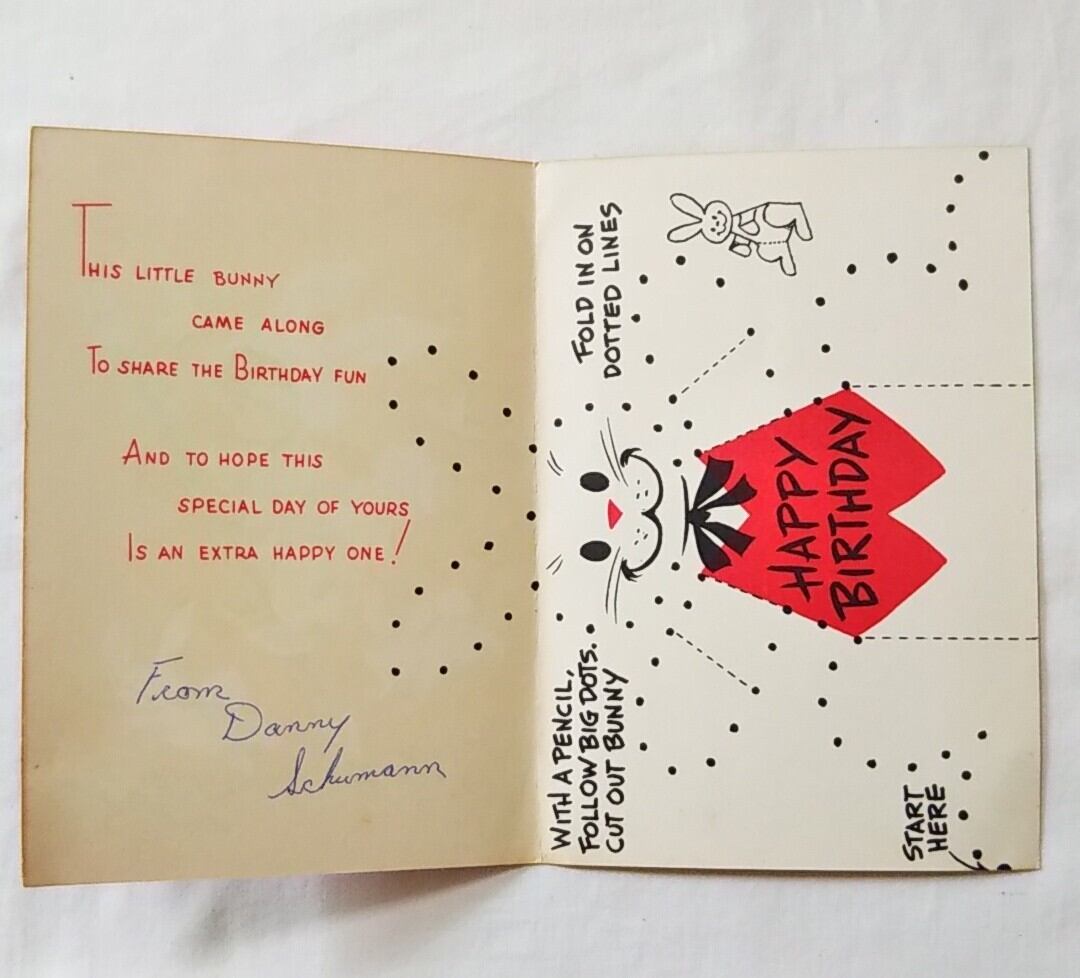 THIS LITTLE BUNNY
CAME ALONG
TO SHARE THE BIRTHDAY FUN
AND TO HOPE THIS
SPECIAL DAY OF YOURS
IS AN EXTRA HAPPY ONE!
From
Danny
Schumann
WITH A PENCIL,
FOLLOW BIG DOTS.
CUT OUT BUNNY
FOLD IN ON
DOTTED LINES
HAPPY
BIRTHDAY
START
HERE